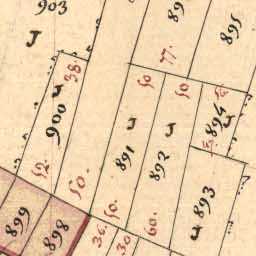 903
J
895
77.
38.
50
50
900
J
J
894
891
892
52.
50.
893
50.
60.
899
898
36.
30